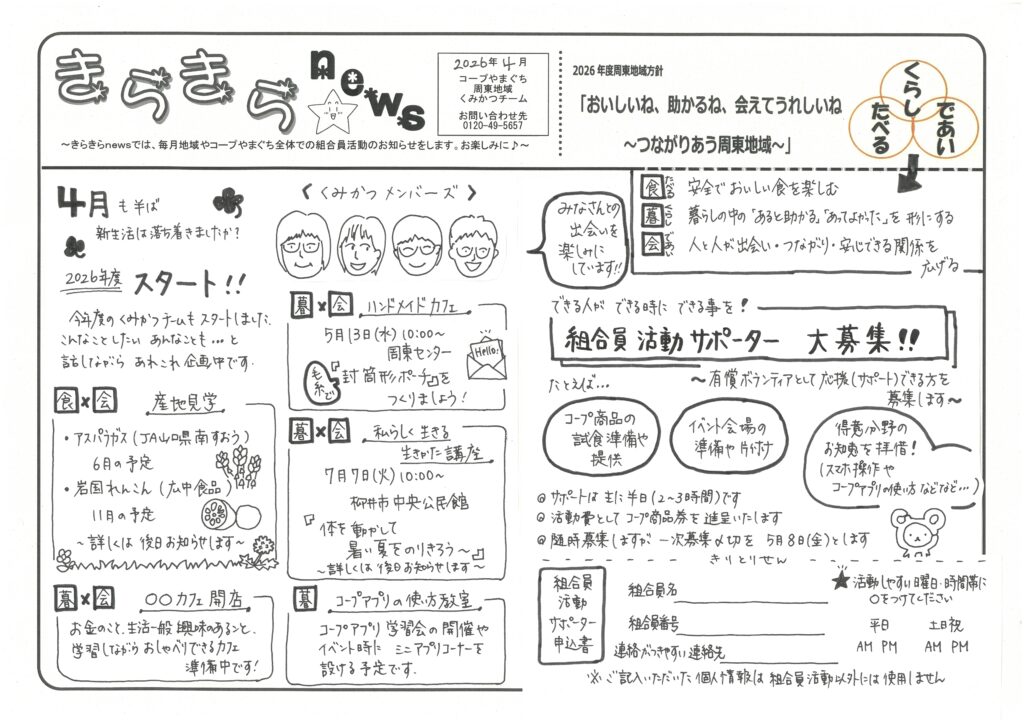 きらきらnews
2026年4月
コープやまぐち
周東地域
くみかつチーム
お問い合わせ先
0120-49-5657
～きらきらnewsでは、毎月地域やコープやまぐち全体での組合員活動のお知らせをします。お楽しみに♪～
2026年度周東地域方針
「おいしいね、助かるね、会えてうれしいね
～つながりあう周東地域～」
くらし
たべる
であい
4月も半ば
新生活は落ち着きましたか？
2026年度
スタート！！
今年度のくみかつチームもスタートしました。
こんなことしたい あんなことも…と
話しながら あれこれ企画中です。
〈くみかつメンバーズ〉
みなさんとの
出会いを
楽しみに
しています!!
食 たべる 安全でおいしい食を楽しむ
暮 くらし 暮らしの中の「あると助かる」「あってよかった」を形にする
会 であい 人と人が出会い・つながり・安心できる関係を
広げる
食×会 産地見学
・アスパラガス（JA山口県南すおう）
6月の予定
・岩国れんこん（広中食品）
11月の予定
～詳しくは後日お知らせします～
暮×会 〇〇カフェ開店
お金のこと、生活一般 興味のあること、
学習しながらおしゃべりできるカフェ
準備中です！
暮×会 ハンドメイドカフェ
5月13日(水)10:00～
周東センター
Hello!
毛糸で
『封筒形ポーチ』を
つくりましょう！
暮×会 私らしく生きる
生きかた講座
7月7日(火)10:00～
柳井市中央公民館
『体を動かして
暑い夏をのりきろう～』
～詳しくは後日お知らせします～
暮 コープアプリの使い方教室
コープアプリ学習会の開催や
イベント時に ミニアプリコーナーを
設ける予定です。
できる人が できる時に できる事を！
組合員活動サポーター 大募集!!
～有償ボランティアとして応援（サポート）できる方を
募集します～
たとえば…
コープ商品の
試食準備や
提供
イベント会場の
準備や片付け
得意分野の
お知恵を拝借！
（スマホ操作や
コープアプリの使い方などなど…）
◎サポートは主に半日（2～3時間）です
◎活動費としてコープ商品券を進呈いたします
◎随時募集しますが 一次募集〆切を 5月8日(金)とします
きりとりせん
組合員
活動
サポーター
申込書
組合員名
組合員番号
連絡がつきやすい連絡先
★活動しやすい曜日・時間帯に
〇をつけてください
平日 土日祝
AM PM AM PM
※ご記入いただいた個人情報は組合員活動以外には使用しません